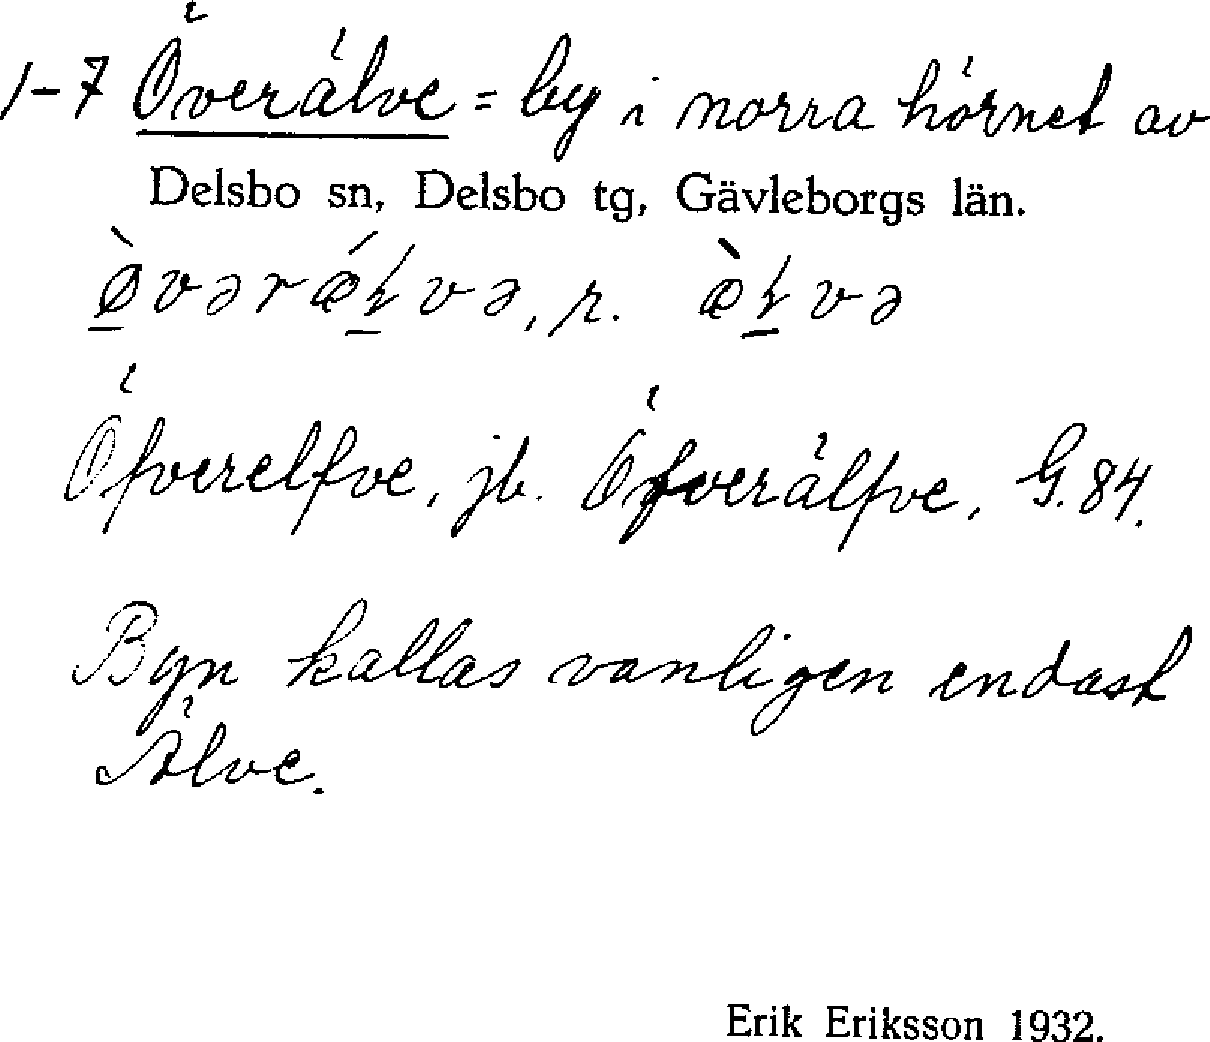 1-7 Överälve = by i norra hörnet av
Delsbo sn, Delsbo tg, Gävleborgs län.
ø̀vərǽɫvə, r. æ̀ɫvə
Öfverelfve, jb. Öfverälfve, G.84.
Byn kallas vanligen endast
Älve.
Erik Eriksson 1932.